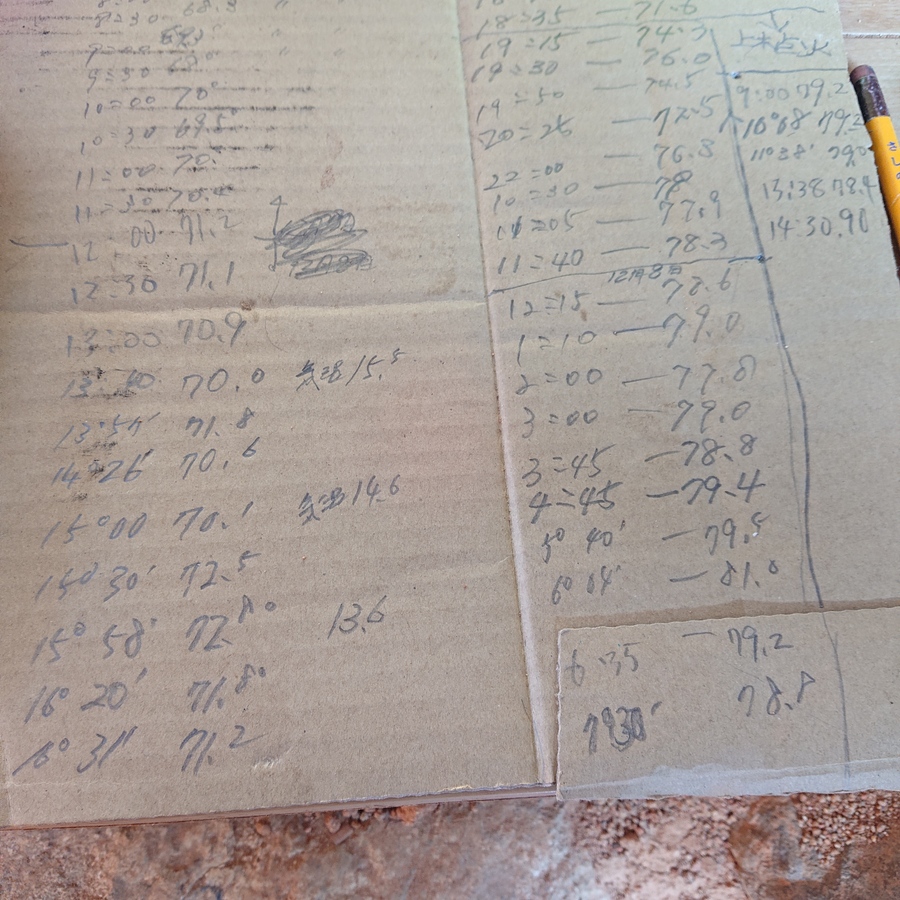 8:30 68.3
9:30 69°
10:00 70°
10:30 69.5°
11:00 70.
11:30 70.4
12 00 71.2
12:30 71.1
13:00 70.9
70.0 気温15.5
13:57' 71.8
14°26' 70.6
15°00 70.1 気温14.6
15°30' 72.5
15°58' 72.8° 13.6
16°20' 71.8°
16°31' 71.2
18=35 — 71.6
19=15 — 74.7
19=30 — 76.0
19=50 — 74.5
20=26 — 72.5
22=00 — 76.3
10=30 — 78
11=05 — 77.9
11=40 — 78.3
12月8日
12=15 — 78.6
1=10 — 79.0
2=00 — 77.8
3=00 — 79.0
3=45 — 78.8
4=45 — 79.4
5°40' — 79.5
6°04' — 81.0
6:35 — 79.2
7°30' 78.8
上木点火
9:00 79.2
79.2
11°38' 79.0
13:38 78.4
14:30.90